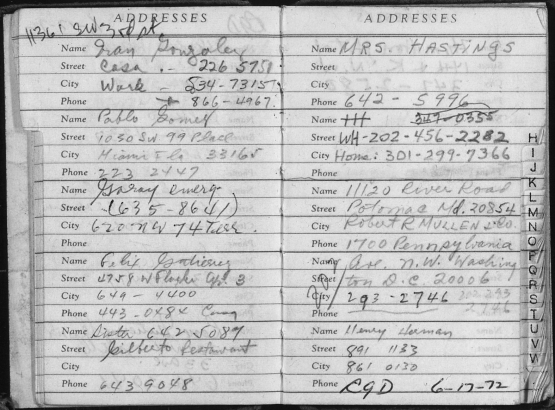 ADDRESSES
1136 SW 3 st
Name Ivan Gonzalez
Street Casa .- 226 5751
City Work - 534-7315
Phone 866-4967
Name Pablo Gomez
Street 1030 SW 99 Place
City Miami Fla 33165
Phone 223 2447
Name Garay emerg.
Street (635-8641)
City 620 NW 74 Terr.
Phone
Name Felix Gutierrez
Street
City 649-4400
Phone 443-0484
Name 642 5089
Street Gilberto Restaurant
City
Phone 643 9048
ADDRESSES
Name MRS. HASTINGS
Street
City
Phone 642-5996
Name HH 347-0355
Street WH-202-456-2282
City Home: 301-299-7366
Phone
Name 11120 River Road
Street Potomac Md. 20854
City Robert R MULLEN & Co.
Phone 1700 Pennsylvania
Name Ave. N.W. Washing
Street ton D.C. 20006
City 293-2746
Phone
Name Henry
Street 891 1133
City 861 0130
Phone RGD 6-17-72
H
I
J
K
L
M
N
O
P
Q
R
S
T
U
V
W